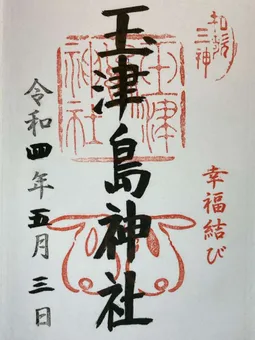 和歌三神
玉津島神社
幸福結び
令和四年五月三日